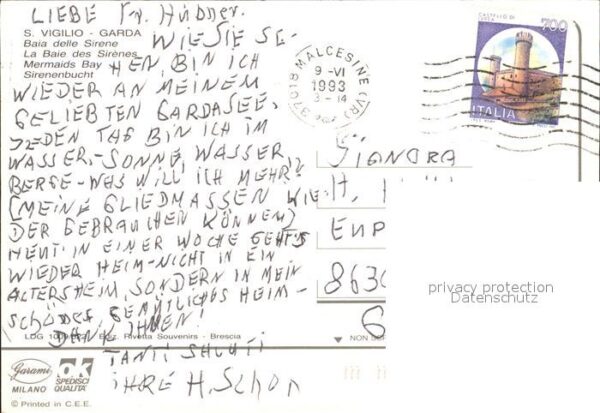 LIEBE Fr. Hübner.
S. VIGILIO - GARDA
Baia delle Sirene
La Baie des Sirènes
Mermaids Bay
Sirenenbucht
WIE SIE SE-
HEN, BIN ICH
WIEDER AN MEINEM
GELIEBTEN GARDASEE,
JEDEN TAG BIN ICH IM
WASSER,-SONNE, WASSER,
BERGE-WAS WILL ICH MEHR?
(MEINE GLIEDMASSEN WIE-
DER GEBRAUCHEN KÖNNEN)
HEUT' IN EINER WOCHE GEHT'S
WIEDER HEIM-NICHT IN EIN
ALTERSHEIM, SONDERN IN MEIN
SCHÖNES, GEMÜTLICHES HEIM-
DANK IHNEN!
TANTI SALUTI
IHRE H. Schon
LDG Riz. Rivetta Souvenirs - Brescia
Garami
MILANO
OK
SPEDISCI
QUALITA'
© Printed in C.E.E.
37018 MALCESINE (VR)
9 -VI
1993
3-14
CASTELLO DI
700
ITALIA
SIGNORA
H.
EUP
863
6
NON
privacy protection
Datenschutz